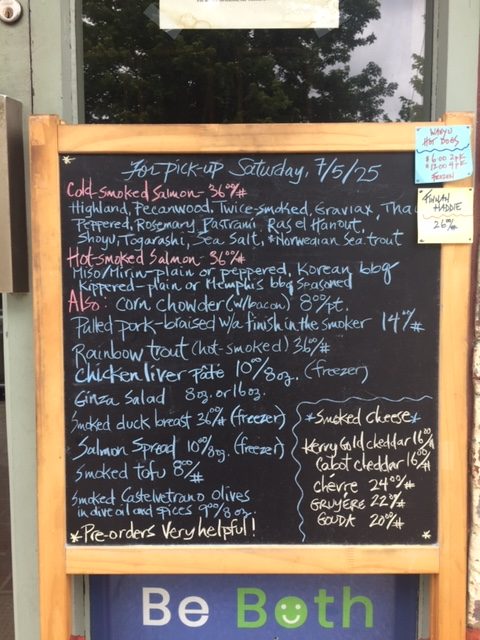 For pick-up Saturday, 7/5/25
Cold-smoked Salmon - 36⁰⁰/#
Highland, Pecanwood, Twice-smoked, Gravlax, Thai
Peppered, Rosemary Pastrami, Ras el Hanout,
Shoyu, Togarashi, Sea Salt, *Norwegian Sea trout
Hot-smoked Salmon - 36⁰⁰/#
Miso/Mirin-plain or peppered, Korean bbq
Kippered-plain or Memphis bbq Seasoned
Also: Corn chowder (w/bacon) 8⁰⁰/pt.
Pulled pork-braised w/a finish in the smoker 14⁰⁰/#
Rainbow trout (hot-smoked) 36⁰⁰/#
Chicken liver Pâté 10⁰⁰/8oz. (freezer)
Ginza Salad 8oz. or 16oz.
Smoked duck breast 36⁰⁰/# (freezer)
Salmon Spread 10⁰⁰/8oz. (freezer)
Smoked tofu 8⁰⁰/#
Smoked Castelvetrano olives
in olive oil and spices 9⁰⁰/8oz.
*Pre-orders Very helpful!
*Smoked Cheese*
Kerrygold cheddar 16⁰⁰/#
Cabot cheddar 16⁰⁰/#
Chèvre 24⁰⁰/#
GRUYÉRE 22⁰⁰/#
GOUDA 20⁰⁰/#
WAGYU
HOT DOGS
$6.00 2pk
$12.00 4pk
FROZEN
FINNAN
HADDIE
26⁰⁰/#
Be Both